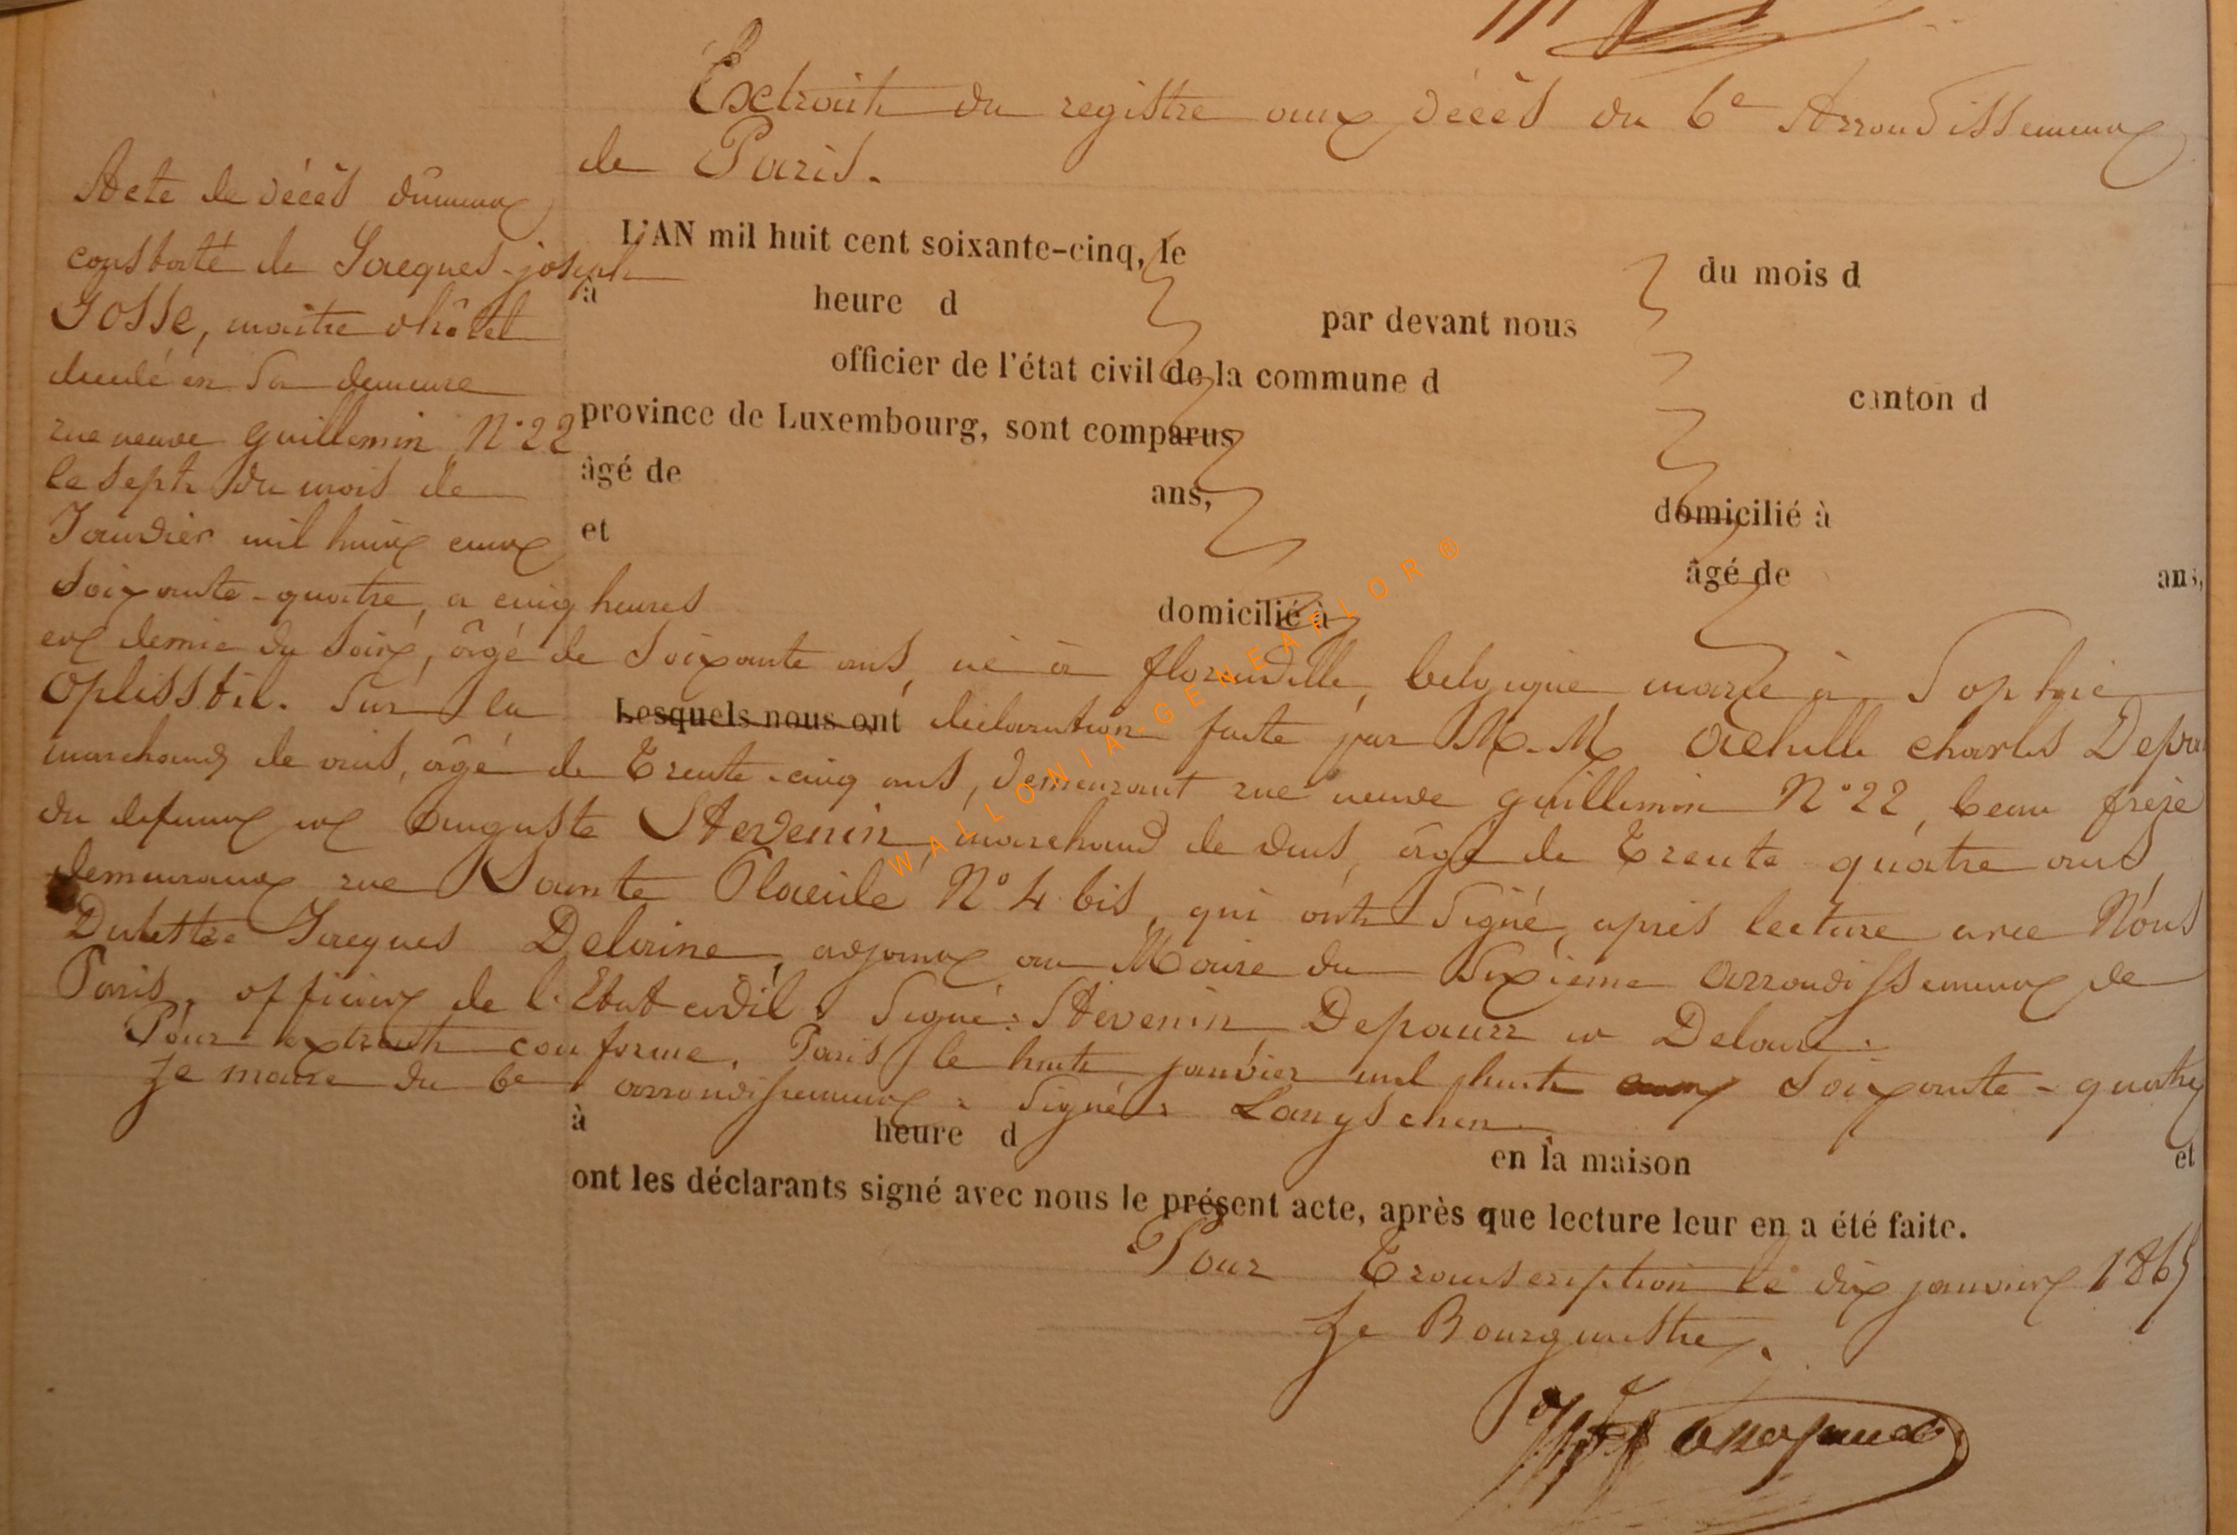 Extrait du registre aux décès du 6e Arrondissement
de Paris.
Acte de décès dûment
constaté de Jacques-joseph
Gosse, maitre d'hôtel
décédé en sa demeure
rue neuve guillemin N°22
le sept du mois de
Janvier mil huit cent
soixante-quatre, a cinq heures
et demie du soir, âgé de soixante ans, né à florenville, belgique, marié à Sophie
L'AN mil huit cent soixante-cinq, le du mois d
à heure d par devant nous
officier de l'état civil de la commune d canton d
province de Luxembourg, sont comparus
âgé de ans, domicilié à
et âgé de ans,
domicilié à
Oplisstil. Sur la Lesquels nous ont déclaration faite par M.M. Achille charles
marchand de vins, âgé de Trente-cinq ans, demeurant rue neuve guillemin N°22, beau frère
du defunt et auguste Stevenin, marchand de vins, âgé de Trente quatre ans,
demeurant rue Sainte Placide N° 4 bis, qui ont signé, après lecture avec Nous
Jacques Delaine, adjoint au Maire du Sixième arrondissement de
Paris, officier de l'Etat civil. Signé: Stevenin, Depaurr et
Pour extrait conforme. Paris le huit janvier mil huit cent soixante-quatre
Le maire du 6e arrondissement. Signé:
à heure d en la maison et
ont les déclarants signé avec nous le présent acte, après que lecture leur en a été faite.
Pour Transcription le dix janvier 1865
Le Bourgmestre.
WALLONIA-GENEAFLOR®